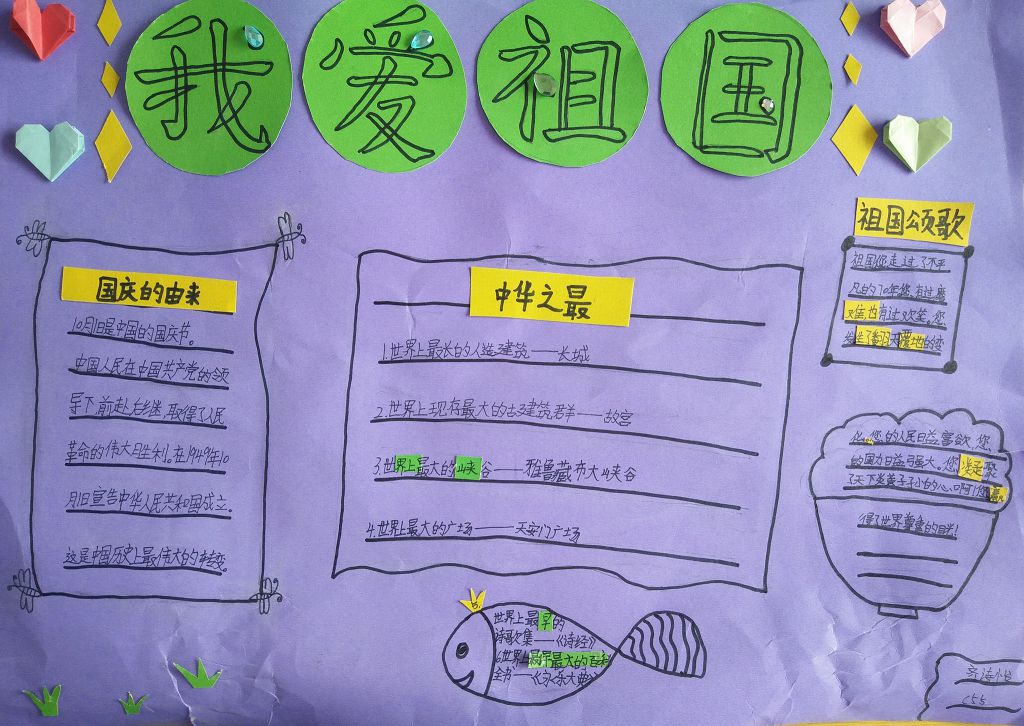 我爱祖国
国庆的由来
10月1日是中国的国庆节。
中国人民在中国共产党的领
导下,前赴后继,取得了人民
革命的伟大胜利。在1949年10
月1日宣告中华人民共和国成立。
这是中国历史上最伟大的转变。
中华之最
1.世界上最长的人造建筑——长城
2.世界上现存最大的古建筑群——故宫
3.世界上最大的峡谷——雅鲁藏布大峡谷
4.世界上最大的广场——天安门广场
5.世界上最早的
诗歌集——《诗经》
6.世界上最早最大的百科
全书——《永乐大典》
祖国颂歌
祖国您走过了不平
凡的70年您有过磨
难,也有过欢笑。您
发生了翻天覆地的变
化,您的人民日益富饶,您
的国力日益强大。您凝聚
了天下炎黄子孙的心啊!您赢
得了世界尊重的目光!